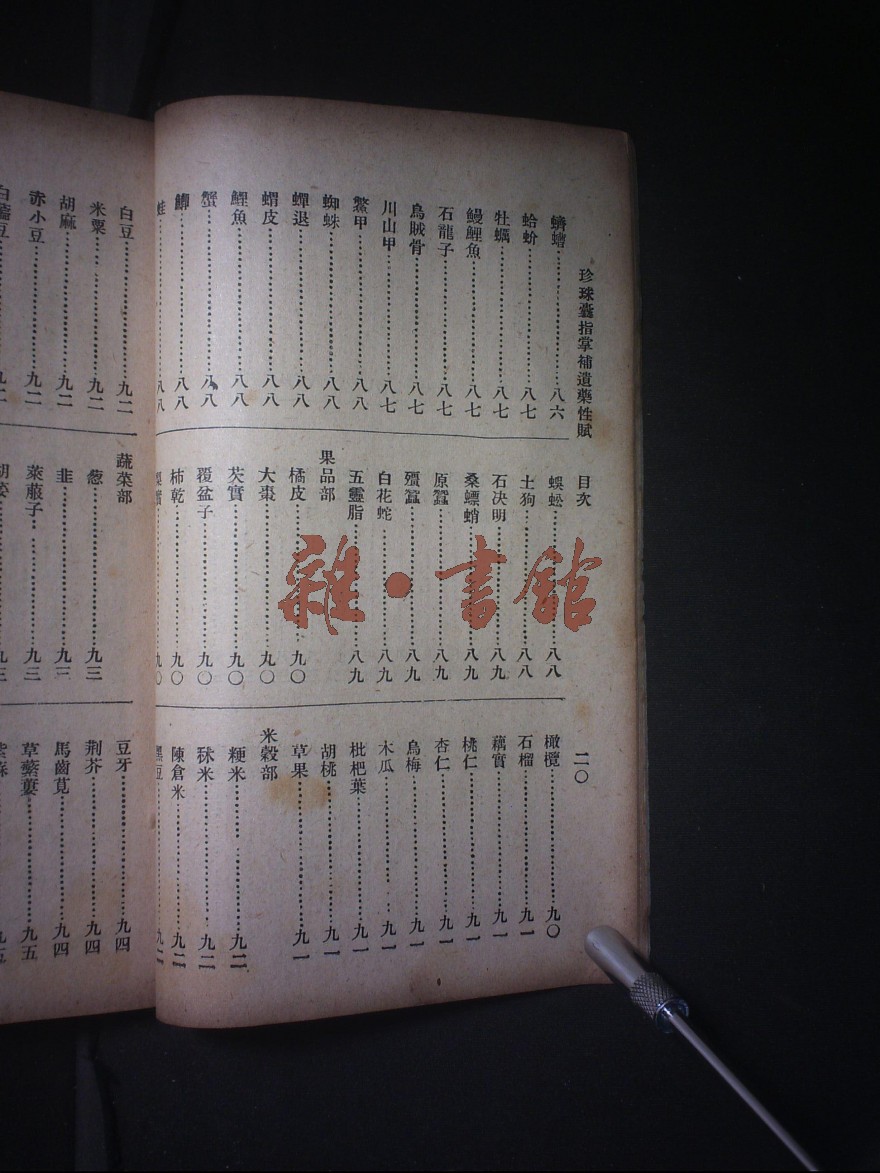 珍珠囊指掌補遺藥性賦
目次
二〇
蠐螬……八六
蛤蚧……八七
牡蠣……八七
鰻鯉魚……八七
石龍子……八七
烏賊骨……八七
川山甲……八七
鱉甲……八八
蜘蛛……八八
蟬退……八八
蝟皮……八八
鯉魚……八八
蟹……八八
鯽……八八
蛙……八八
蜈蚣……八八
土狗……八八
石決明……八九
桑螵蛸……八九
原蠶……八九
殭蠶……八九
白花蛇……八九
五靈脂……八九
果品部
橘皮……九〇
大棗……九〇
芡實……九〇
覆盆子……九〇
柿乾……九〇
橄欖……九〇
石榴……九一
藕實……九一
桃仁……九一
杏仁……九一
烏梅……九一
木瓜……九一
枇杷葉……九一
胡桃……九一
草果……九一
米穀部
粳米……九二
秫米……九二
陳倉米……九二
黑豆……九二
白豆……九二
米粟……九二
胡麻……九二
赤小豆……九二
蔬菜部
葱……九三
韭……九三
萊菔子……九三
豆牙……九四
荆芥……九四
馬齒莧……九四
草藥蔞……九五
雜·書館